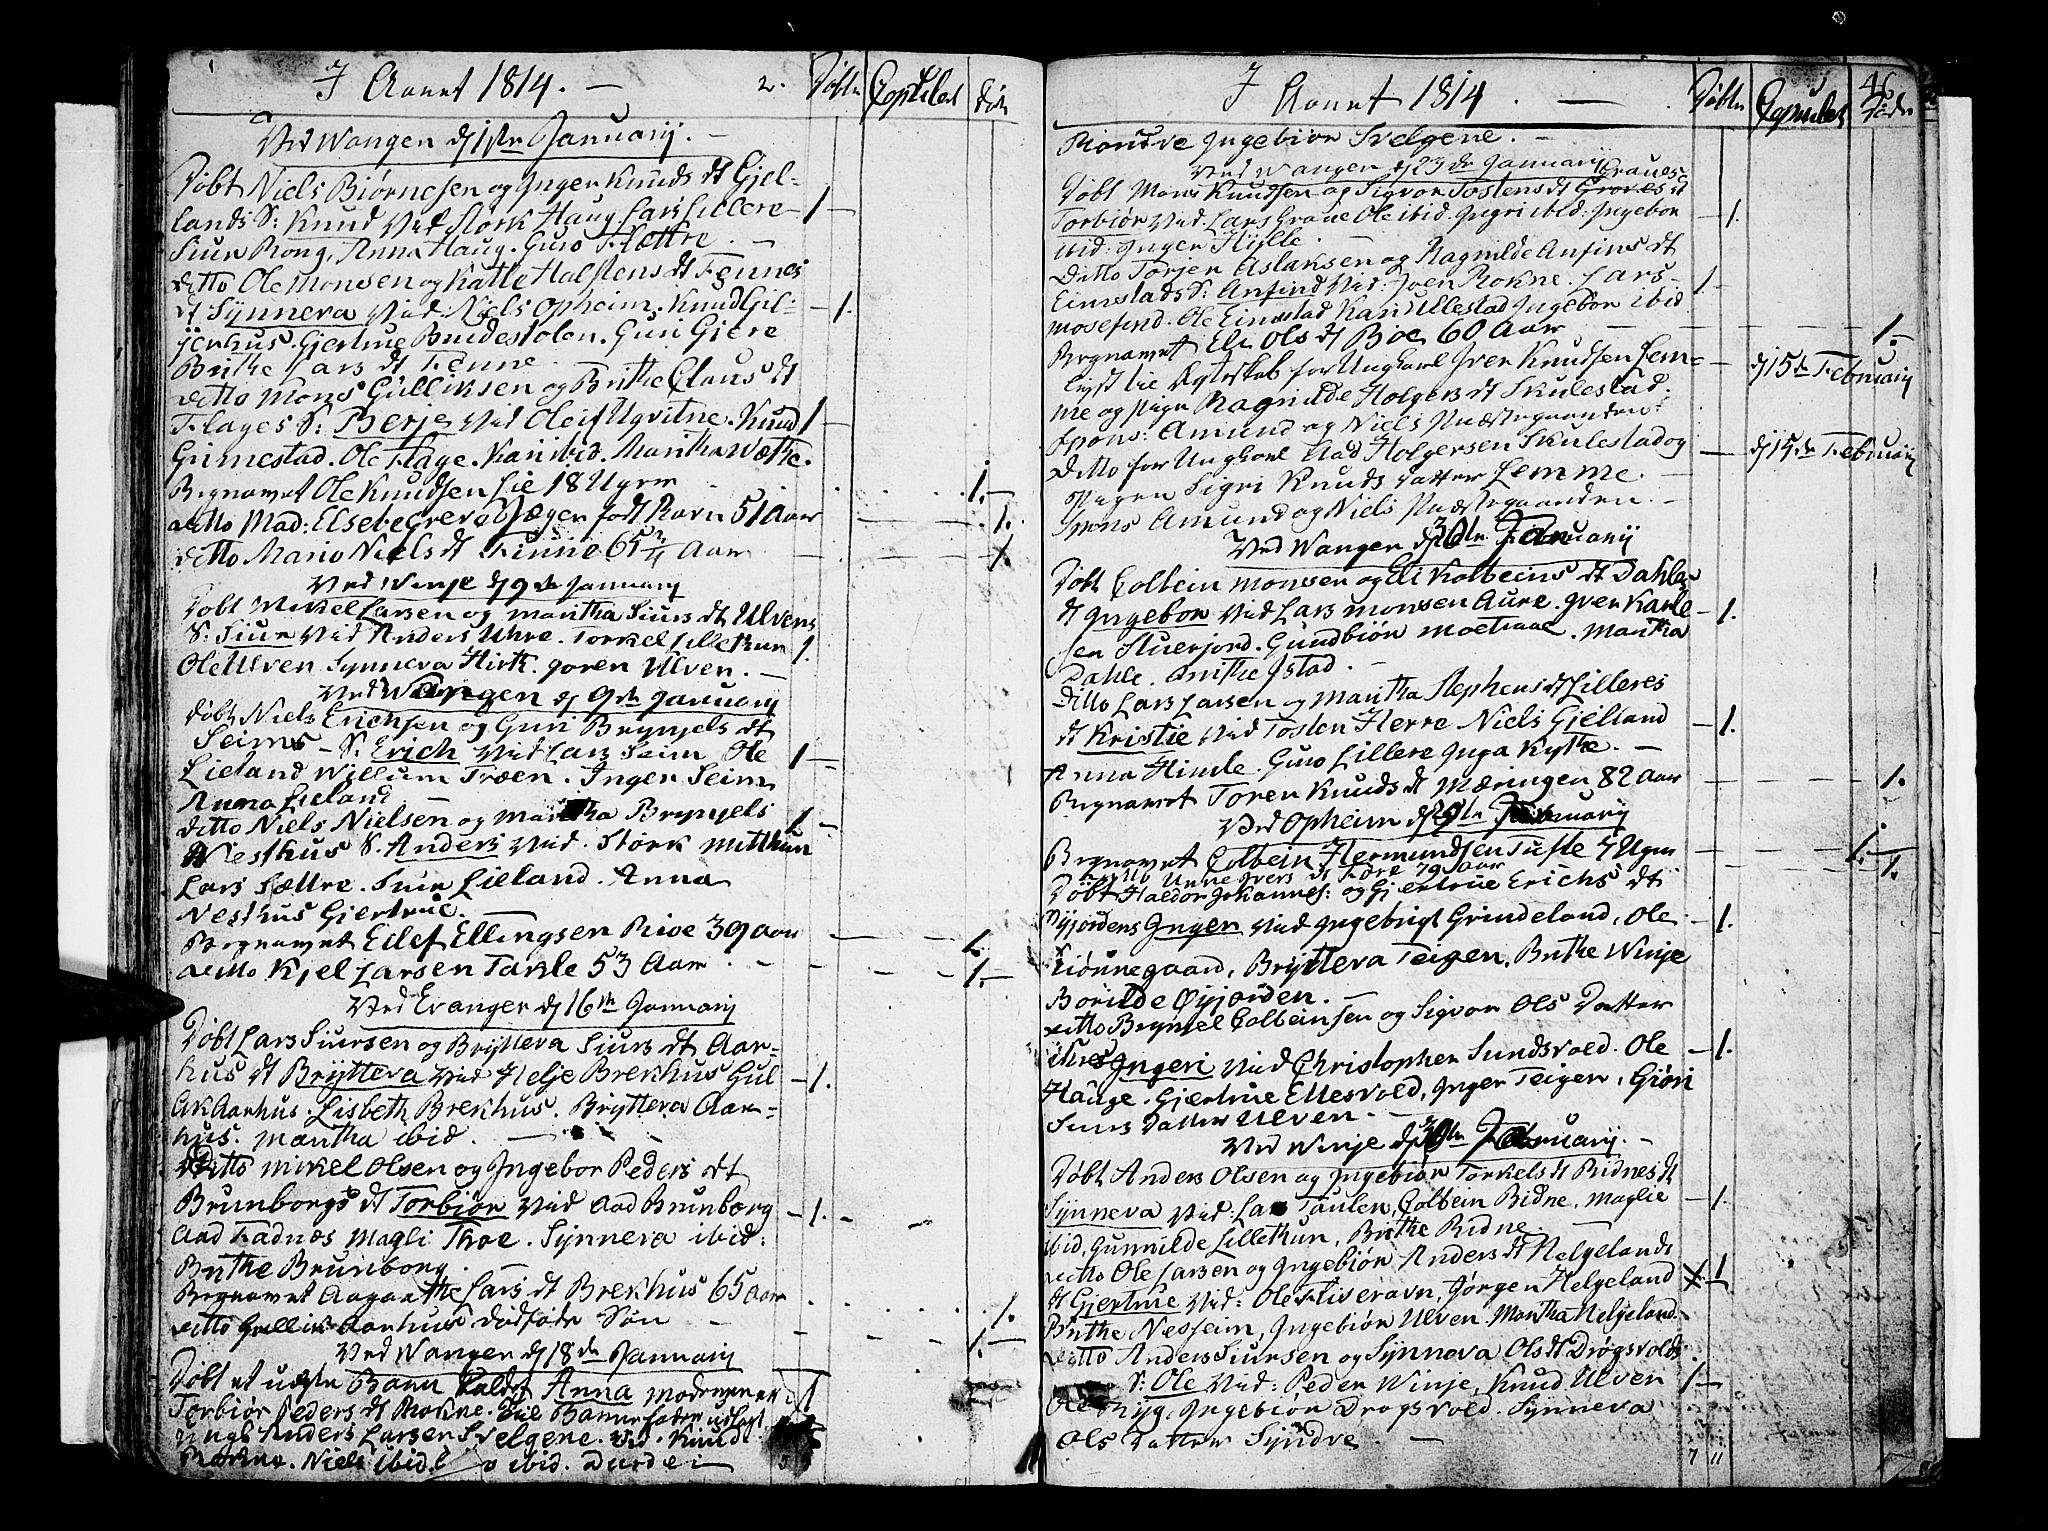 I Aaret 1814. — 2. Døbte Copulat døde
Ved Wangen dj 1ste Januarij. —
Døbt Niels Biørnesen og Inger Knuds dt Gjel-
lands S: Knud Vid Størk Haug. Lars Lillere — 1 —
Siur Rong, Anna Haug. Guro Sættre. —
ditto Ole Monsen og Katle Halstens dt Fennes
dt Synneva Vid: Niels Opheim. Knud Gil- — 1.
jerhus. Gjertrue Bndestolen. Guri Giere
Brithe Lars dt Fenne.
ditto Mons Gulliksen og Brithe Claus dt
Flages S: Berje Vid Oleif Ugvitne. Knud 1
Grimestad. Ole Flage. Kari ibid. Maritha Wæthe.
Begravet Ole Knudsen Lie 18 Ugrm 1. —
ditto Mad: Elsebe Greve Jæger født Ravn 51 Aar — 1.
ditto Mario Niels dt Finne 65 Aar — 1
Ved Winje dj 9de Januarij
Døbt Mikel Larsen og Maritha Siurs dt Ulvens
S: Siur Vid Anders Uhre. Torkel Lillethun 1.
Ole Ulven Synneva Hirth. Joren Ulven. —
Ved Wangen dj 9de Januarij
døbt Niels Erichsen og Guri Brynjels dt
Seims — S: Erich Vid Lars Seim Ole 1 —
Lieland Willum Træen. Inger Seim
Anna Lieland
ditto Niels Nielsen og Maritha Brynjels 1 —
Nesthus S. Anders Vid. Størk Mitthun
Lars Sættre. Siur Lieland. Anna
Nesthus Gjertrue.
Begravet Eilef Ellingsen Rioe 39 Aar — 1.
ditto Kjel Larsen Takle 53 Aar. — 1. —
Ved Evanger dj 16de Januarij
Døbt Lars Siursen og Bryttera Siurs dt Aar-
hus dt Bryttera Vid Helje Brekhus Gul — 1.
Ak Aarhus. Lisbeth Brekhus. Bryttera Aar-
hus. Martha ibid. —
Ditto Mikel Olsen og Ingebor Peders dt
Brunborgs dt Torbior Vid Aad Brunborg — 1. —
Aad Fadnæs Magli Thoe. Synneva ibid:
Brithe Brunborg.
Begravet Aagaathe Lars dt Brekhus 65 Aar 1.
ditto Gullik Aarhus Dødføde Søn — 1. —
Ved Wangen dj 18de Januarij
Døbt et uægte Barn kaldt Anna Moderen er 1
Torbiør Peders dt Rokne. til Barnefader udlagt
Ungk Anders Larsen Svelgene. Vid. Knud
Rokne. Niels ibid. ibid. Durdei
I Aaret 1814. — Døbte Copuleret 46 Døde
Rondve Ingebior Svelgene. —
Ved Wangen dj 23de Januarij
Graues
Døbt Mons Knudsen og Sigvor Tostens dt Groves dt
Torbiør Vid. Lars Graue Ole ibid. Ingri ibid: Ingebor — 1.
ibid: Inger Hylle.
Ditto Torjer Aslaksen og Ragnilde Anfins dt
Eimstads S: Anfind Vid: Joen Rokne. Lars — 1
Mosefind. Ole Eimstad Kari Ullestad Ingebor ibid
Begravet Eli Ols dt Boe 60 Aar — 1. —
Lyst tie Egteskab for Ungkarl Iver Knudsen Lem- — dj 15de Februarij
me og Pige Ragnilde Holgers dt Skulestad.
Spons: Amund og Niels Næstegaarden.
Ditto for Ungkarl Aad Holgersen Skulestad og — dj 15de Februarij
Pigen Sigri Knuds Datter Lemme.
Spons Amund og Niels Næstegaarden. —
Ved Wangen dj 30te Januarij
Døbt Colbein Monsen og Eli Kolbeins dt Dahle
dt Ingebor Vid Lars Monsen Aure. Iver Karle — 1.
sen Stuerjord. Gundbiør Moetraae. Martha
Dahle. Anithe Istad. —
Ditto Lars Larsen og Maritha Stephens dt Lilleres
dt Kristie Vid Tosten Herre Niels Gjelland — 1.
Anna Himle. Guro Lillere Inga Kythe. —
Begravet Toren Knuds dt Mæringen 82 Aar — 1.
Ved Opheim dj
Begravet Colbein Hermundsen Tufte 7 Ugm — 1.
Unne Ivers dt Fære 79 Aar 1.
Døbt Haldor Johannes: og Gjertrue Erichs dt
Øyjordens Inger Vid Ingebrigt Grindeland, Ole — 1.
Kiønnegaard, Bryttera Teigen. Brithe Winje
Borilde Øyjorden. —
ditto Brynjel Colbeinsen og Sigvor Ols Datter
Uhres Ingeri Vid Christopher Sundsvold. Ole — 1.
Hauge. Gjertrue Ellesvold, Inger Teigen, Giøri
Siurs Datter Ulven. —
Ved Winje dj
Døbt Anders Olsen og Ingebiør Torkels dt Ridnes dt
Synneva Vid: Taulen, Colbein Bidne, Maglie — 1.
ibid, Gunnilde Lillethun, Brithe Bidne. —
ditto Ole Larsen og Ingebiør Anders dt Helgelands
dt Gjertrue Vid: Ole Kliveravn, Jørgen Helgeland 1
Brithe Nesheim, Ingebiør Ulven Martha Helgeland.
ditto Anders Siursen og Synneva Ols dt Drøgsvolds
S: Ole Vid: Peder Winje, Knud Ulven 1 —
Ole Ryg, Ingebiør Drøgsvold. Synneva
Ols Datter Syndve —
7 11